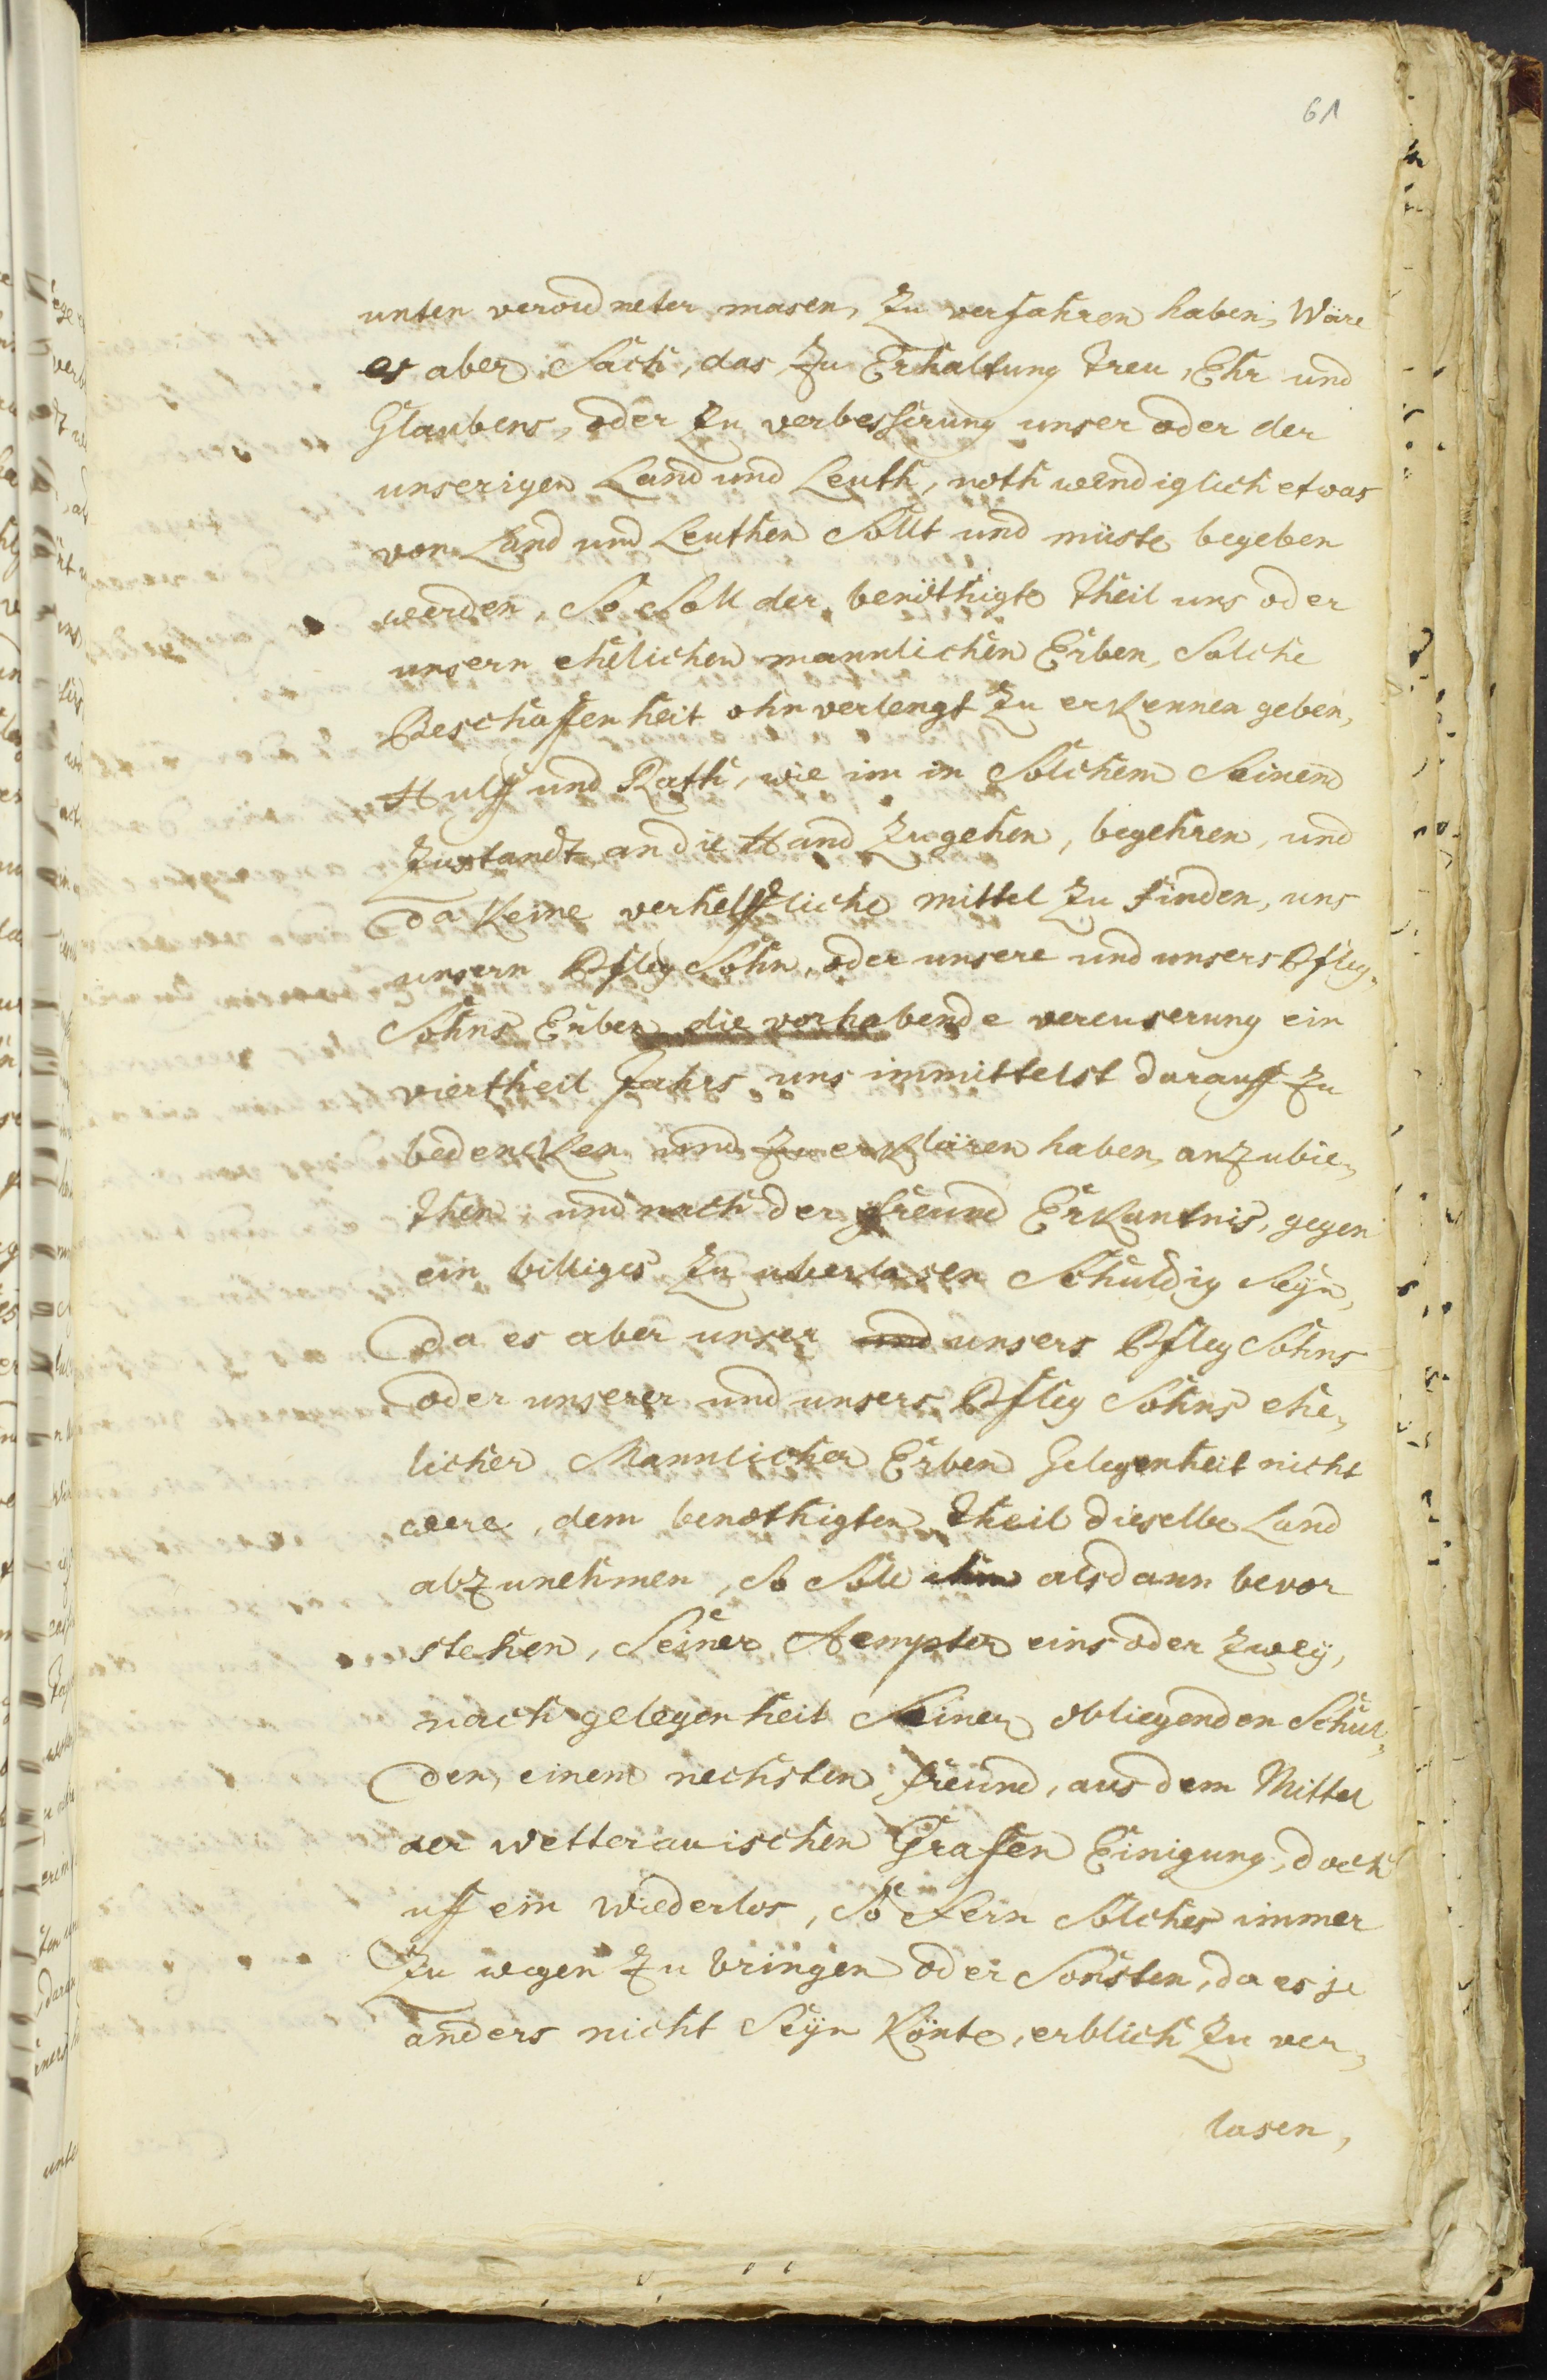 61
unten verordneter masen, Zu verfahren haben, Wäre
es aber Sach, das, Zu Erhaltung Treu, Ehr und
Glaubens, oder Zu verbesserung unser oder der
unserigen Land und Leuth, nothwendiglich etwas
von Land und Leuthen Sollt und müste begeben
werden, So Soll der benöthigte Theil uns oder
unsern ehelichen mannlichen Erben, Solche
Beschaffenheit ohnverlengt Zu erkennen geben,
Hülff und Rath, wie im in Solchem Seinem
Zustandt an die Hand Zugehen, begehren, und
da Keine verhelffliche mittel Zu finden, uns
unsern Pfleg Sohn, oder unsere und unsers Pfleg-
Sohns Erben die vorhabende vereuserung ein
viertheil Jahrs, uns immittelst darauff Zu
bedencken und Zu erklären haben, anzubie-
then, und nach der freund Erkantnis, gegen
ein billiges Zu uberlasen Schuldig Seyn,
Da es aber unser und unsers Pfleg Sohns
oder unserer und unsers Pfleg Sohns ehe-
licher Mannlicher Erben Gelegenheit nicht
were, dem benöthigten Theil dieselbe Land
abzunehmen, So Soll ihm alsdann bevor
stehen, Seiner Aempter eins oder Zweÿ,
nach gelegenheit Seiner obliegenden Schul-
den, einem nechsten freund, aus dem Mittel
der Wetterauischen Grafen Einigung, doch
uff ein Wiederlos, So fern Solches immer
Zu wegen Zu bringen oder Sonsten, da es je
anders nicht Seÿn Könte, erblich Zu ver-
lasen,